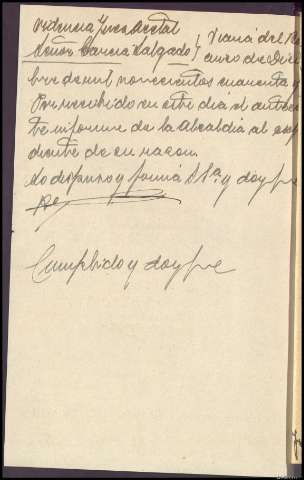 Providencia Juez Acctal
Señor García Salgado } Viana del
cinco de Dici
bre de mil novecientos cuarenta y
Por recibido en este día el antece
te informe de la Alcaldía al exp
diente de su razon.
Lo dispuso y firma S Sª. y doy fe

Cumplido y doy fe